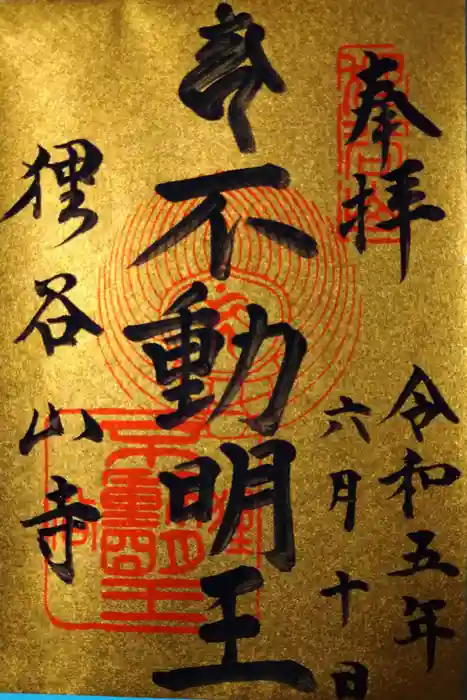 奉拝
令和五年
六月十日
不動明王
狸谷山寺